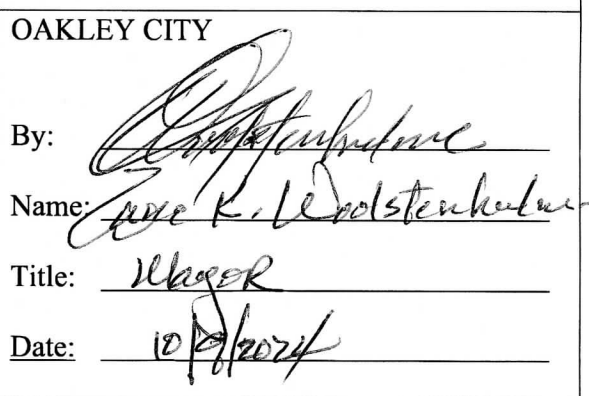 OAKLEY CITY
By: Woolstenhulme
Name: Zane K. Woolstenhulme
Title: Mayor
Date: 10/9/2024